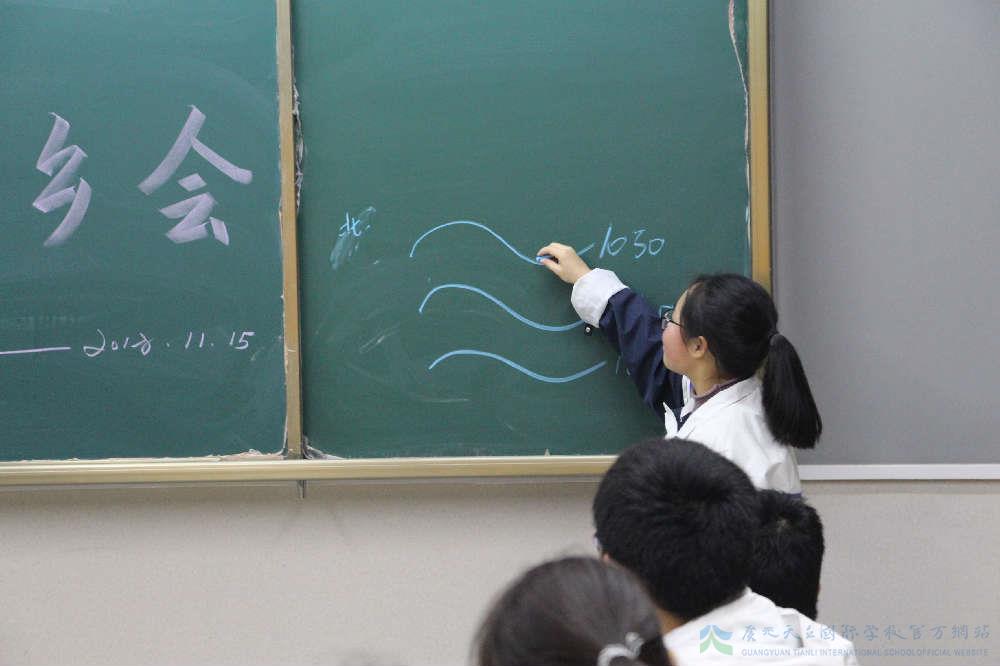 乡会
2018.11.15
北
1030
广元天立国际学校官方網站
GUANGYUAN TIANLI INTERNATIONAL SCHOOL OFFICIAL WEBSITE